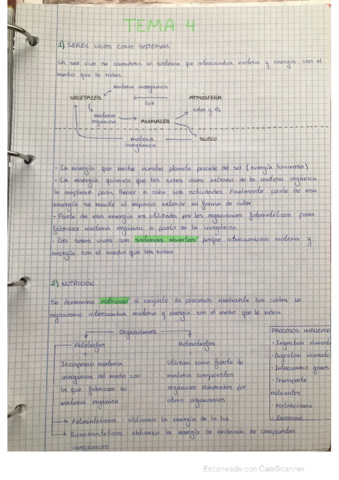 TEMA 4
1) SERES VIVOS COMO SISTEMAS
Un ser vivo se considera un sistema que intercambia materia y energía con el
medio que le rodea
materia inorgánica
VEGETALES
ATMÓSFERA
luz
materia
orgánica
ANIMALES
materia
inorgánica
SUELO
- La energía que recibe nuestro planeta procede del sol (energía luminosa)
- La energía química que los seres vivos extraen de la materia orgánica
la emplean para llevar a cabo sus actividades. Finalmente parte de esa
energía se al espacio exterior en forma de calor
- Parte de esa energía es utilizada por los organismos fotosintéticos para
fabricar materia orgánica a partir de la inorgánica
- Los seres vivos son sistemas abiertos porque intercambian materia y
energía con el medio que les rodea
2) NUTRICIÓN
Se denomina nutrición al conjunto de procesos mediante los cuales un
organismo intercambia materia y energía con el medio que le rodea
Organismos
Autótrofos
Heterótrofos
PROCESOS
Incorporan materia
inorgánica del medio con
la que fabrican su
materia orgánica
Utilizan como fuente de
materia compuestos
orgánicos elaborados por
otros organismos
· Ingestión
· Digestión
· Intercambio gases
· Transporte
nutrientes
· Metabolismo
· Excreción
→ Fotosintéticos utilizan la energía de la luz
→ Quimiosintéticos utilizan la energía de oxidación de compuestos
inorgánicos
Escaneado con CamScanner